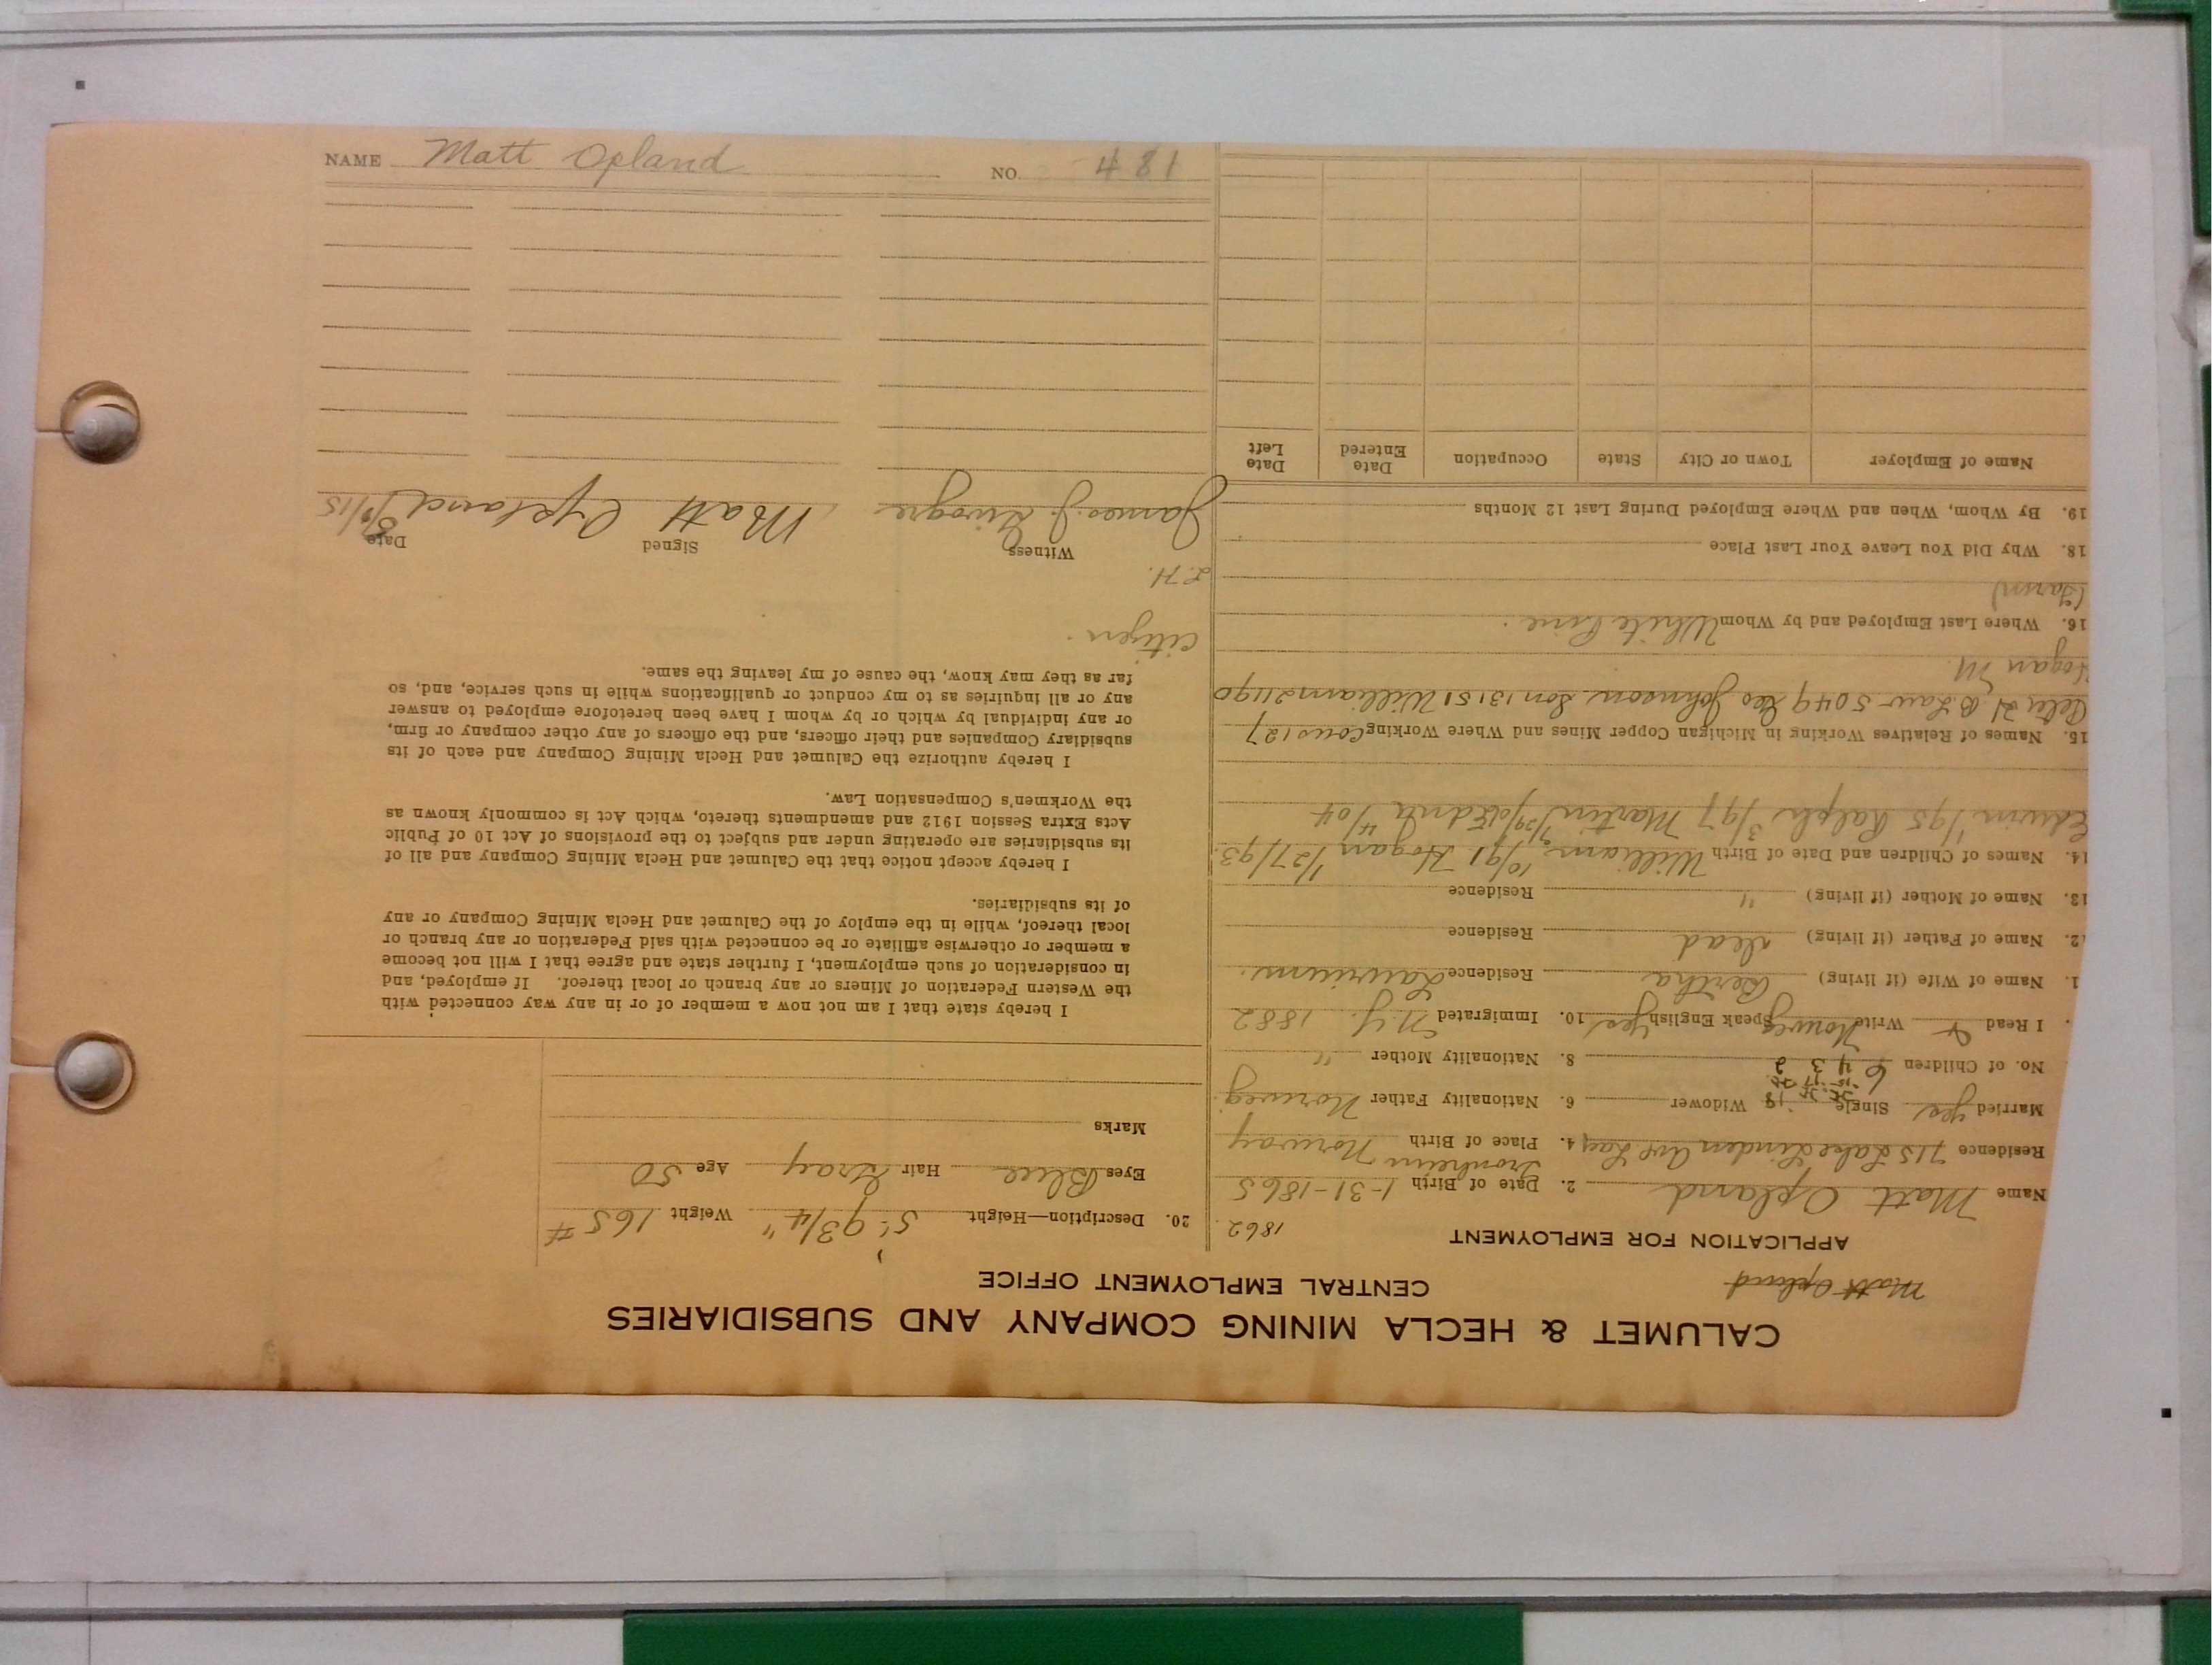 CALUMET & HECLA MINING COMPANY AND SUBSIDIARIES
CENTRAL EMPLOYMENT OFFICE
Matt Opland
APPLICATION FOR EMPLOYMENT
1862
Name Matt Opland 2. Date of Birth 1-31-1865
Residence 715 Lake Linden Ave 4. Place of Birth Norway
Married yes Single Widower 6. Nationality Father Norweg.
No. of Children 6 8. Nationality Mother "
I Read & Write Norweg Speak English yes 10. Immigrated N.Y. 1882
1. Name of Wife (if living) Bertha Residence Laurium.
2. Name of Father (if living) Dead Residence
13. Name of Mother (if living) " Residence
14. Names of Children and Date of Birth William 10/91 Hogan 1/27/93.
Edwin 1/95 Ralph 3/97 Martin Edna 4/04
15. Names of Relatives Working in Michigan Copper Mines and Where Working Cous 127
Peter H. B. Law 5049 Geo Johnson Son 13151 William 21190
Hogan M.
16. Where Last Employed and by Whom White Pine.
(Farm)
18. Why Did You Leave Your Last Place
19. By Whom, When and Where Employed During Last 12 Months
Name of Employer Town or City State Occupation Date Entered Date Left
20. Description—Height 5' 9 3/4" Weight 165 #
Eyes Blue Hair Gray Age 50
Marks
I hereby state that I am not now a member of or in any way connected with
the Western Federation of Miners or any branch or local thereof. If employed, and
in consideration of such employment, I further state and agree that I will not become
a member or otherwise affiliate or be connected with said Federation or any branch or
local thereof, while in the employ of the Calumet and Hecla Mining Company or any
of its subsidiaries.
I hereby accept notice that the Calumet and Hecla Mining Company and all of
its subsidiaries are operating under and subject to the provisions of Act 10 of Public
Acts Extra Session 1912 and amendments thereto, which Act is commonly known as
the Workmen's Compensation Law.
I hereby authorize the Calumet and Hecla Mining Company and each of its
subsidiary Companies and their officers, and the officers of any other company or firm,
or any individual by which or by whom I have been heretofore employed to answer
any or all inquiries as to my conduct or qualifications while in such service, and, so
far as they may know, the cause of my leaving the same.
Citizen.
L.H.
Witness Signed Date
James J. Matt Opland
NAME Matt Opland NO. 481